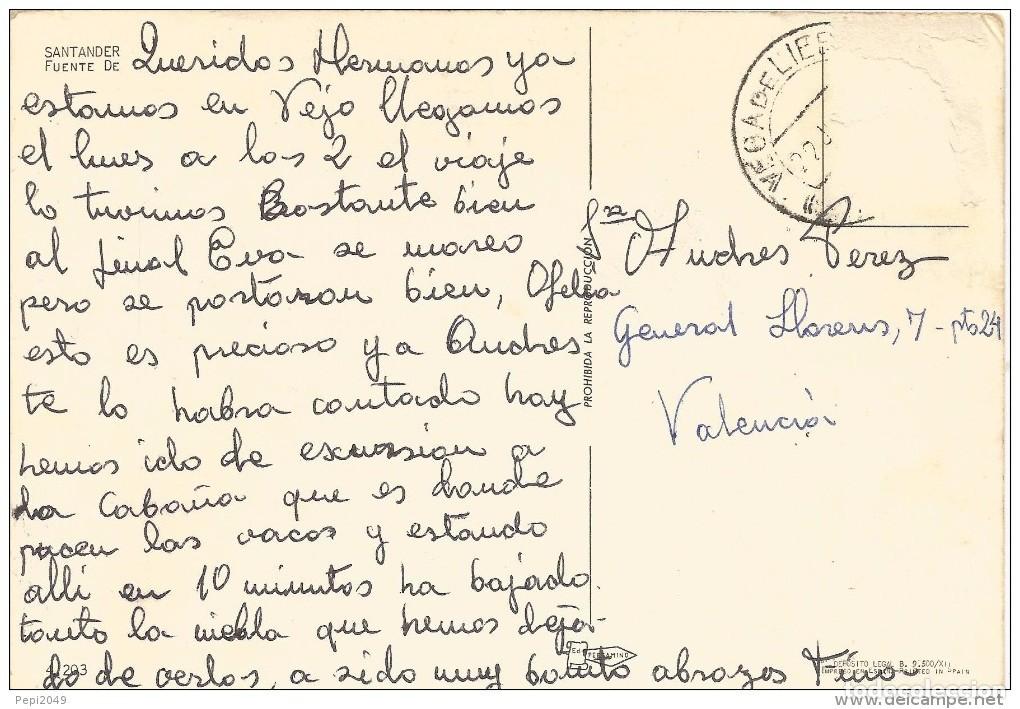 SANTANDER
FUENTE DE
Queridos Hermanos ya
estamos en Vejo llegamos
el lunes a las 2 el viaje
lo tuvimos Bastante bien
al final Eva se mareo
pero se portaron bien, Ofelia
esto es precioso ya Andres
te lo habra contado hay
hemos ido de excursion a
La Cabaña que es donde
pacen las vacas y estando
alli en 10 minutos ha bajado
tanto la niebla que hemos deja-
do de verlas, a sido muy bonito abrazos Tino
293
PROHIBIDA LA REPRODUCCIÓN
VEGA DE LIEB
22
Andres Perez
General Llorens, 7 - pta 24
Valencia
Ed. PERGAMINO
DEPOSITO LEGAL B. 9.500/XII
IMPRESO EN ESPAÑA PRINTED IN SPAIN
Pepi2049
todocoleccion
www.delcampe.net